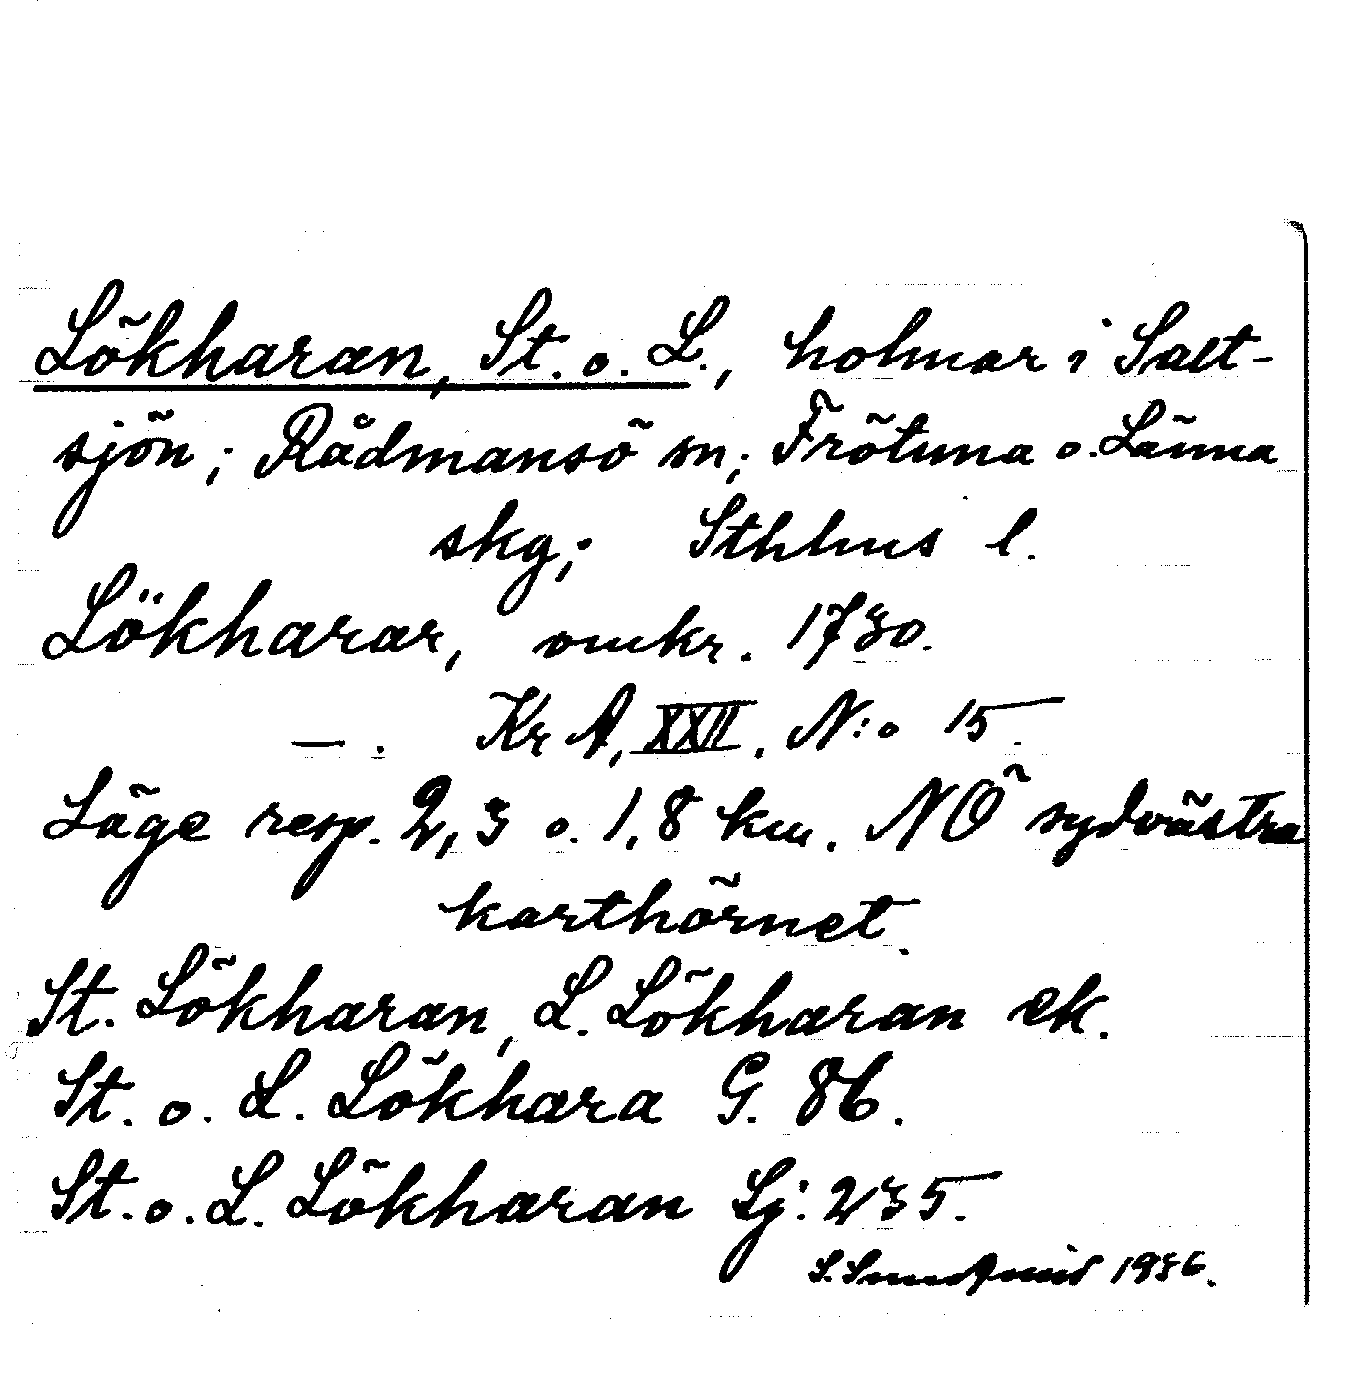 Lökharan, St. o. L., holmar i Salt-
sjön; Rådmansö sn; Frötuna o. Länna
skg; Sthlms l.
Lökharar, omkr. 1730.
—. Kr A, XXII. N:o 15.
Läge resp. 2,3 o. 1,8 km. NÖ sydvästra
karthörnet.
St. Lökharan, L. Lökharan ek.
St. o. L. Lökhara G. 86.
St. o. L. Lökharan Sj: 235.
S. Sundqvist 1936.